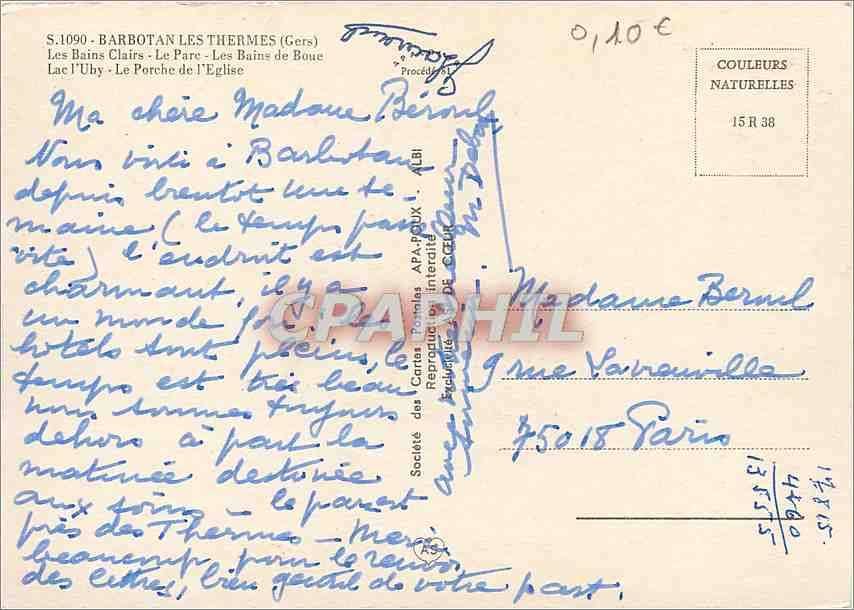 S.1090 - BARBOTAN LES THERMES (Gers)
Les Bains Clairs - Le Parc - Les Bains de Boue
Lac l'Uby - Le Porche de l'Eglise
Procédé 81
0,10 €
COULEURS
NATURELLES
15 R 38
Ma chère Madame Béroul
Nous voici à Barbotan
depuis bientot une se
maine (le temps passe
vite) l'endroit est
charmant, il y a
un monde fou, les
hotels sont pleins, le
temps est très beau
nous sommes toujours
dehors à part la
matinée destinée
aux soins - le parc est
près des Thermes - Merci
beaucoup pour le renvoi
des lettres, bien gentil de votre part.
Société des Cartes Postales APA-POUX - ALBI
Reproduction interdite
Exclusivité DE CŒUR
AS
Madame Beroul
9 rue
75018 Paris
17815
4460
13555
CPAPHIL